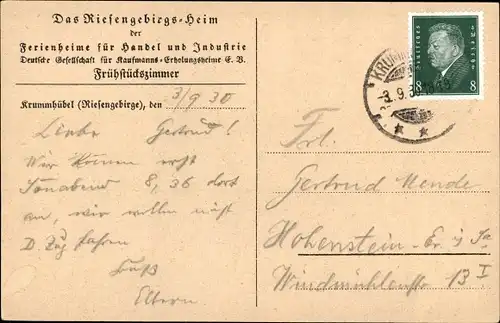 Das Riesengebirgs-Heim
der
Ferienheime für Handel und Industrie
Deutsche Gesellschaft für Kaufmanns-Erholungsheime E. V.
Frühstückszimmer
Krummhübel (Riesengebirge), den 3/9 30
Liebe Gertrud!
Wir kommen erst
Sonabend 8,36 dort
an, wir wollen nicht
D. Zug fahren
Gruß
Eltern
Deutsches Reich
8 8
KRUMM
-3.9.3
Frl.
Gertrud Mende
Hohenstein-Er. i. Sa
Windmühlenstr 13 I